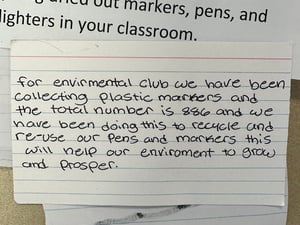 dried out markers, pens, and
lighters in your classroom.
for envirmental club we have been
collecting plastic markers and
the total number is 886 and we
have been doing this to recycle and
re-use our pens and markers this
will help our enviroment to grow
and prosper.